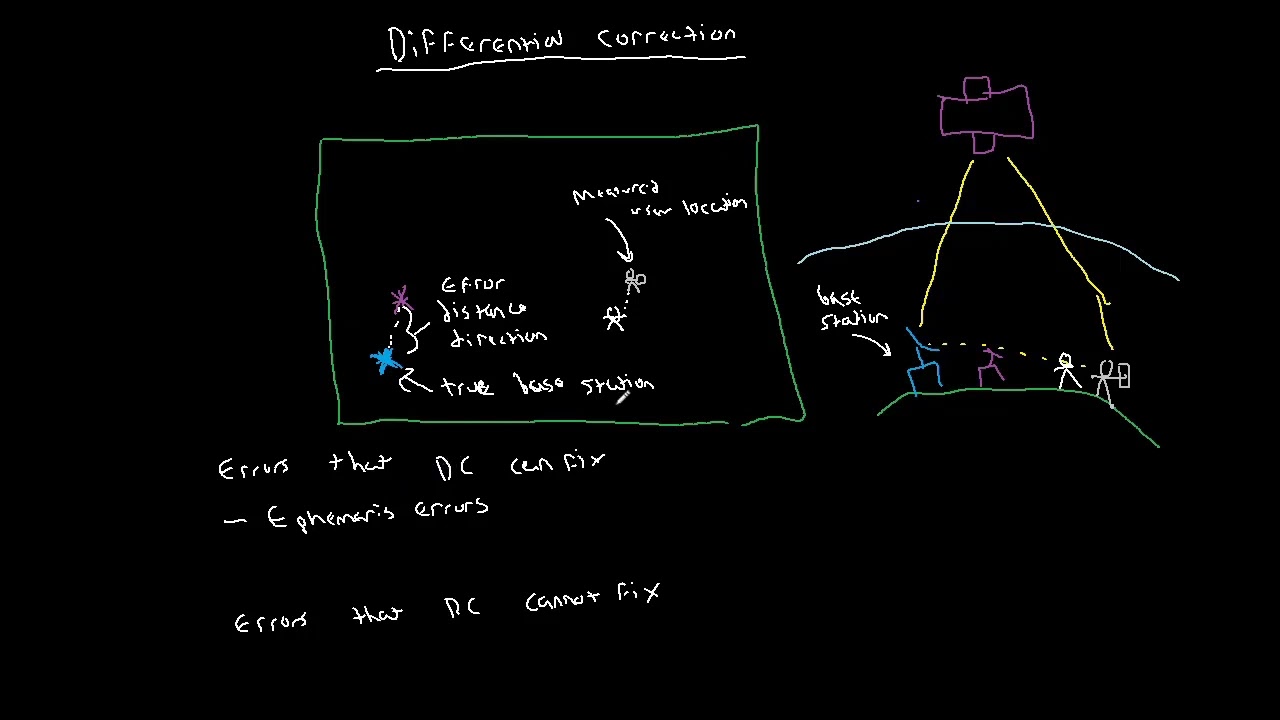 Differential correction
Measured
user location
Error
distance
direction
true base station
base
station
Errors that DC can fix
- Ephemeris errors
Errors that DC cannot fix